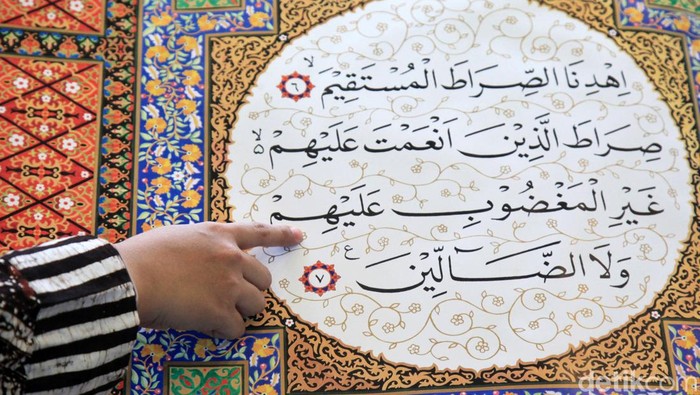 اِهْدِنَا الصِّرَاطَ الْمُسْتَقِيْمَۙ ٦
صِرَاطَ الَّذِيْنَ اَنْعَمْتَ عَلَيْهِمْ ۙ٥
غَيْرِ الْمَغْضُوْبِ عَلَيْهِمْ
وَلَا الضَّاۤلِّيْنَ ࣖ ٧
detikcom